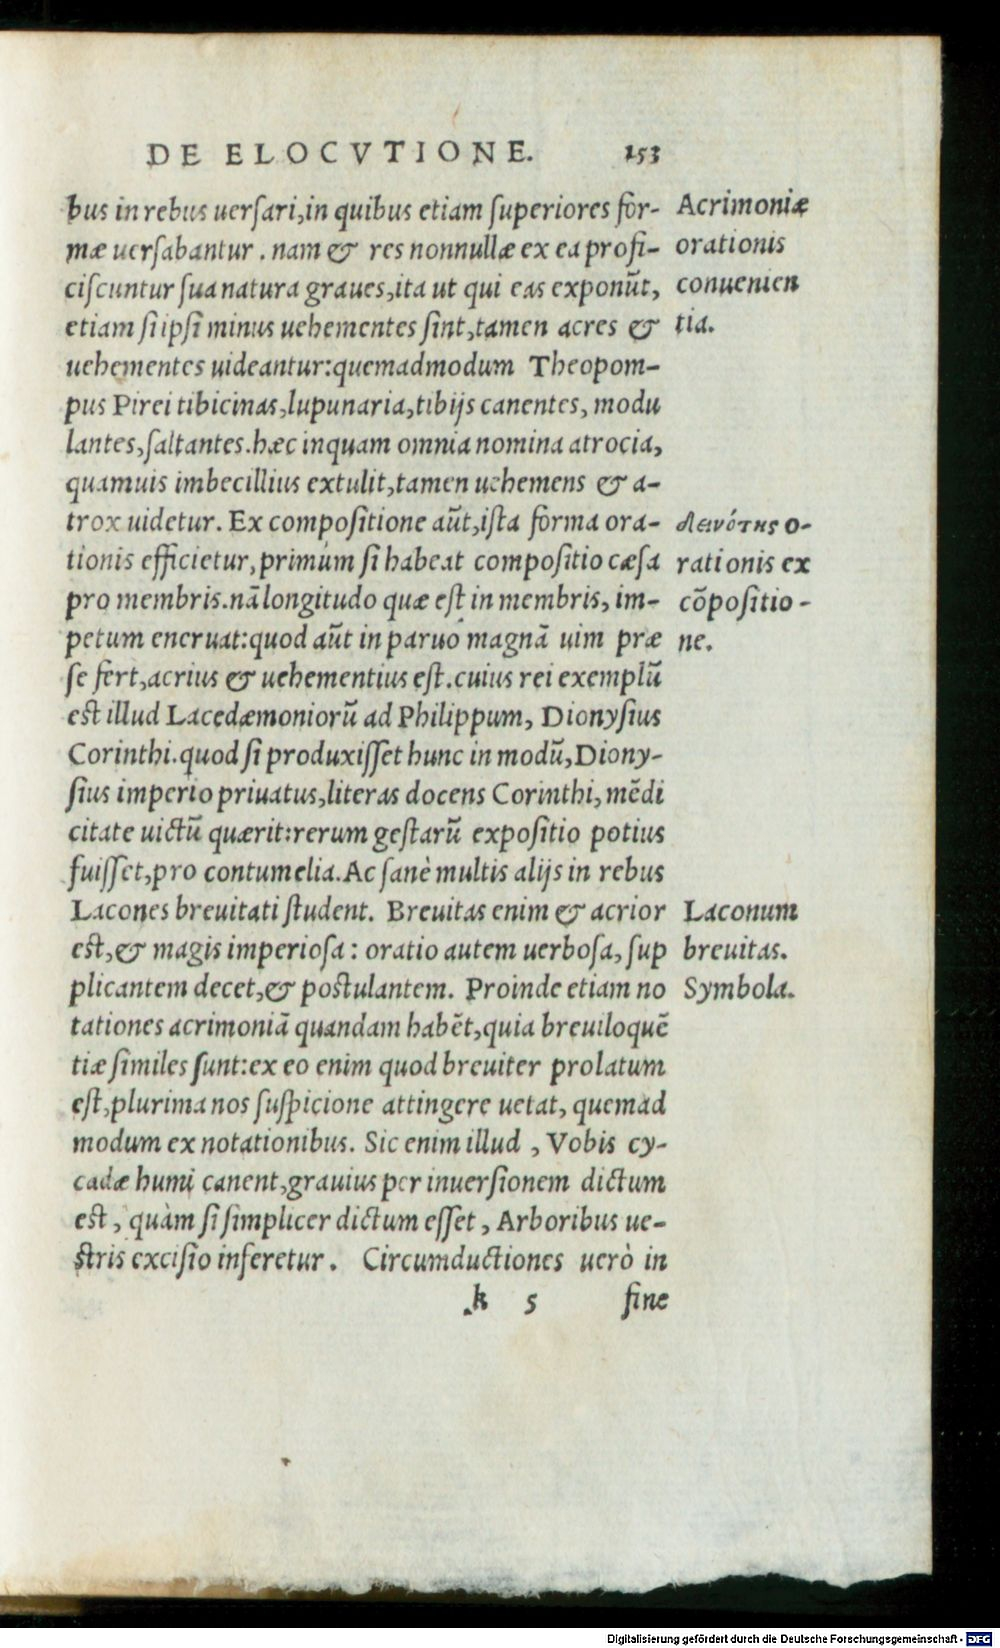 DE ELOCVTIONE. 153
bus in rebus uersari,in quibus etiam superiores for-
mæ uersabantur . nam & res nonnullæ ex ea profi-
ciscuntur sua natura graues,ita ut qui eas exponũt,
etiam si ipsi minus uehementes sint,tamen acres &
uehementes uideantur:quemadmodum Theopom-
pus Pirei tibicinas,lupunaria,tibijs canentes, modu
lantes,saltantes.hæc inquam omnia nomina atrocia,
quamuis imbecillius extulit,tamen uehemens & a-
trox uidetur. Ex compositione aũt,ista forma ora-
tionis efficietur,primùm si habeat compositio cæsa
pro membris.nã longitudo quæ est in membris, im-
petum eneruat:quod aũt in paruo magnã uim præ
se fert,acrius & uehementius est.cuius rei exemplũ
est illud Lacedæmoniorũ ad Philippum, Dionysius
Corinthi.quod si produxisset hunc in modũ,Diony-
sius imperio priuatus,literas docens Corinthi, mẽdi
citate uictũ quærit:rerum gestarũ expositio potius
fuisset,pro contumelia.Ac sanè multis alijs in rebus
Lacones breuitati student. Breuitas enim & acrior
est,& magis imperiosa: oratio autem uerbosa, sup
plicantem decet,& postulantem. Proinde etiam no
tationes acrimoniã quandam habẽt,quia breuiloquẽ
tiæ similes sunt:ex eo enim quod breuiter prolatum
est,plurima nos suspicione attingere uetat, quemad
modum ex notationibus. Sic enim illud , Vobis cy-
cadæ humi canent,grauius per inuersionem dictum
est, quàm si simplicer dictum esset, Arboribus ue-
stris excisio inferetur. Circumductiones uerò in
k 5 fine
Acrimoniæ
orationis
conuenien
tia.
δεινότης o-
rationis ex
cõpositio-
ne.
Laconum
breuitas.
Symbola.
Digitalisierung gefördert durch die Deutsche Forschungsgemeinschaft - DFG